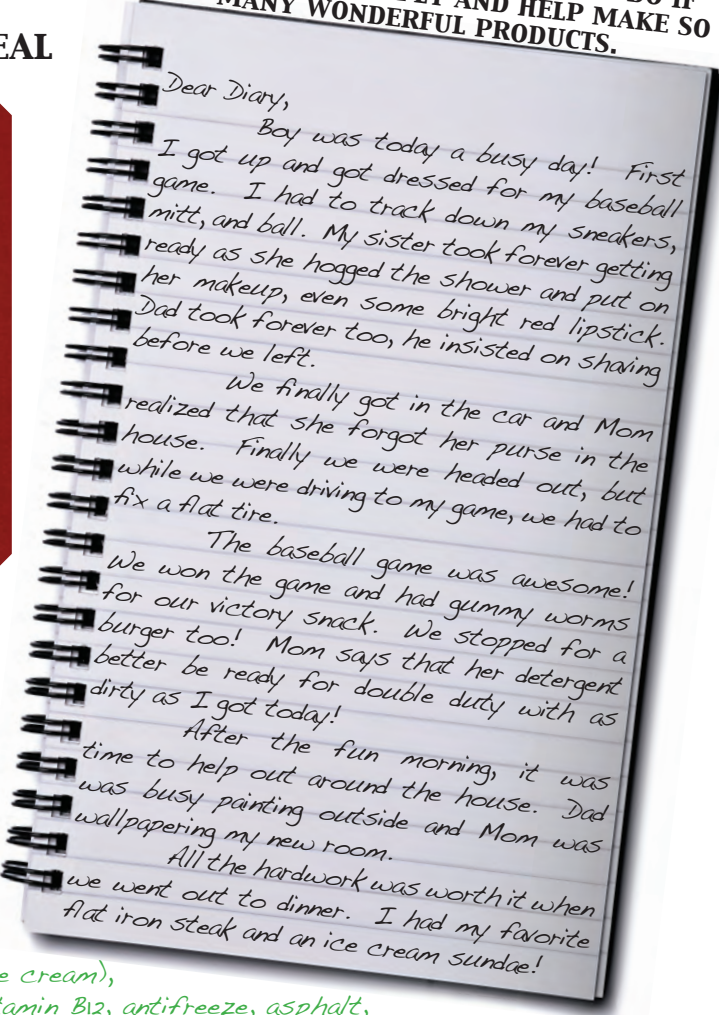 DO IF
AND HELP MAKE SO
MANY WONDERFUL PRODUCTS.
EAL
Dear Diary,
Boy was today a busy day! First
I got up and got dressed for my baseball
game. I had to track down my sneakers,
mitt, and ball. My sister took forever getting
ready as she hogged the shower and put on
her makeup, even some bright red lipstick.
Dad took forever too, he insisted on shaving
before we left.
We finally got in the car and Mom
realized that she forgot her purse in the
house. Finally we were headed out, but
while we were driving to my game, we had to
fix a flat tire.
The baseball game was awesome!
We won the game and had gummy worms
for our victory snack. We stopped for a
burger too! Mom says that her detergent
better be ready for double duty with as
dirty as I got today!
After the fun morning, it was
time to help out around the house. Dad
was busy painting outside and Mom was
wallpapering my new room.
All the hardwork was worth it when
we went out to dinner. I had my favorite
flat iron steak and an ice cream sundae!
e cream),
tamin B12, antifreeze, asphalt,